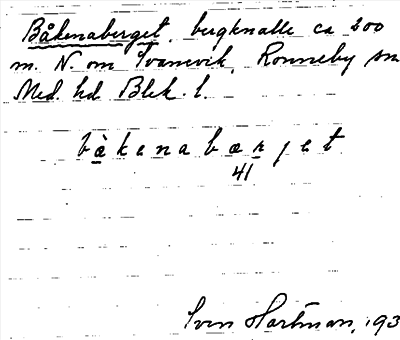 Båkenaberget, bergknalle ca 200
m. N. om Tvänevik, Ronneby sn
Med. hd Blek. l.
bàkenabærjet
41
Sven Hartman, 193